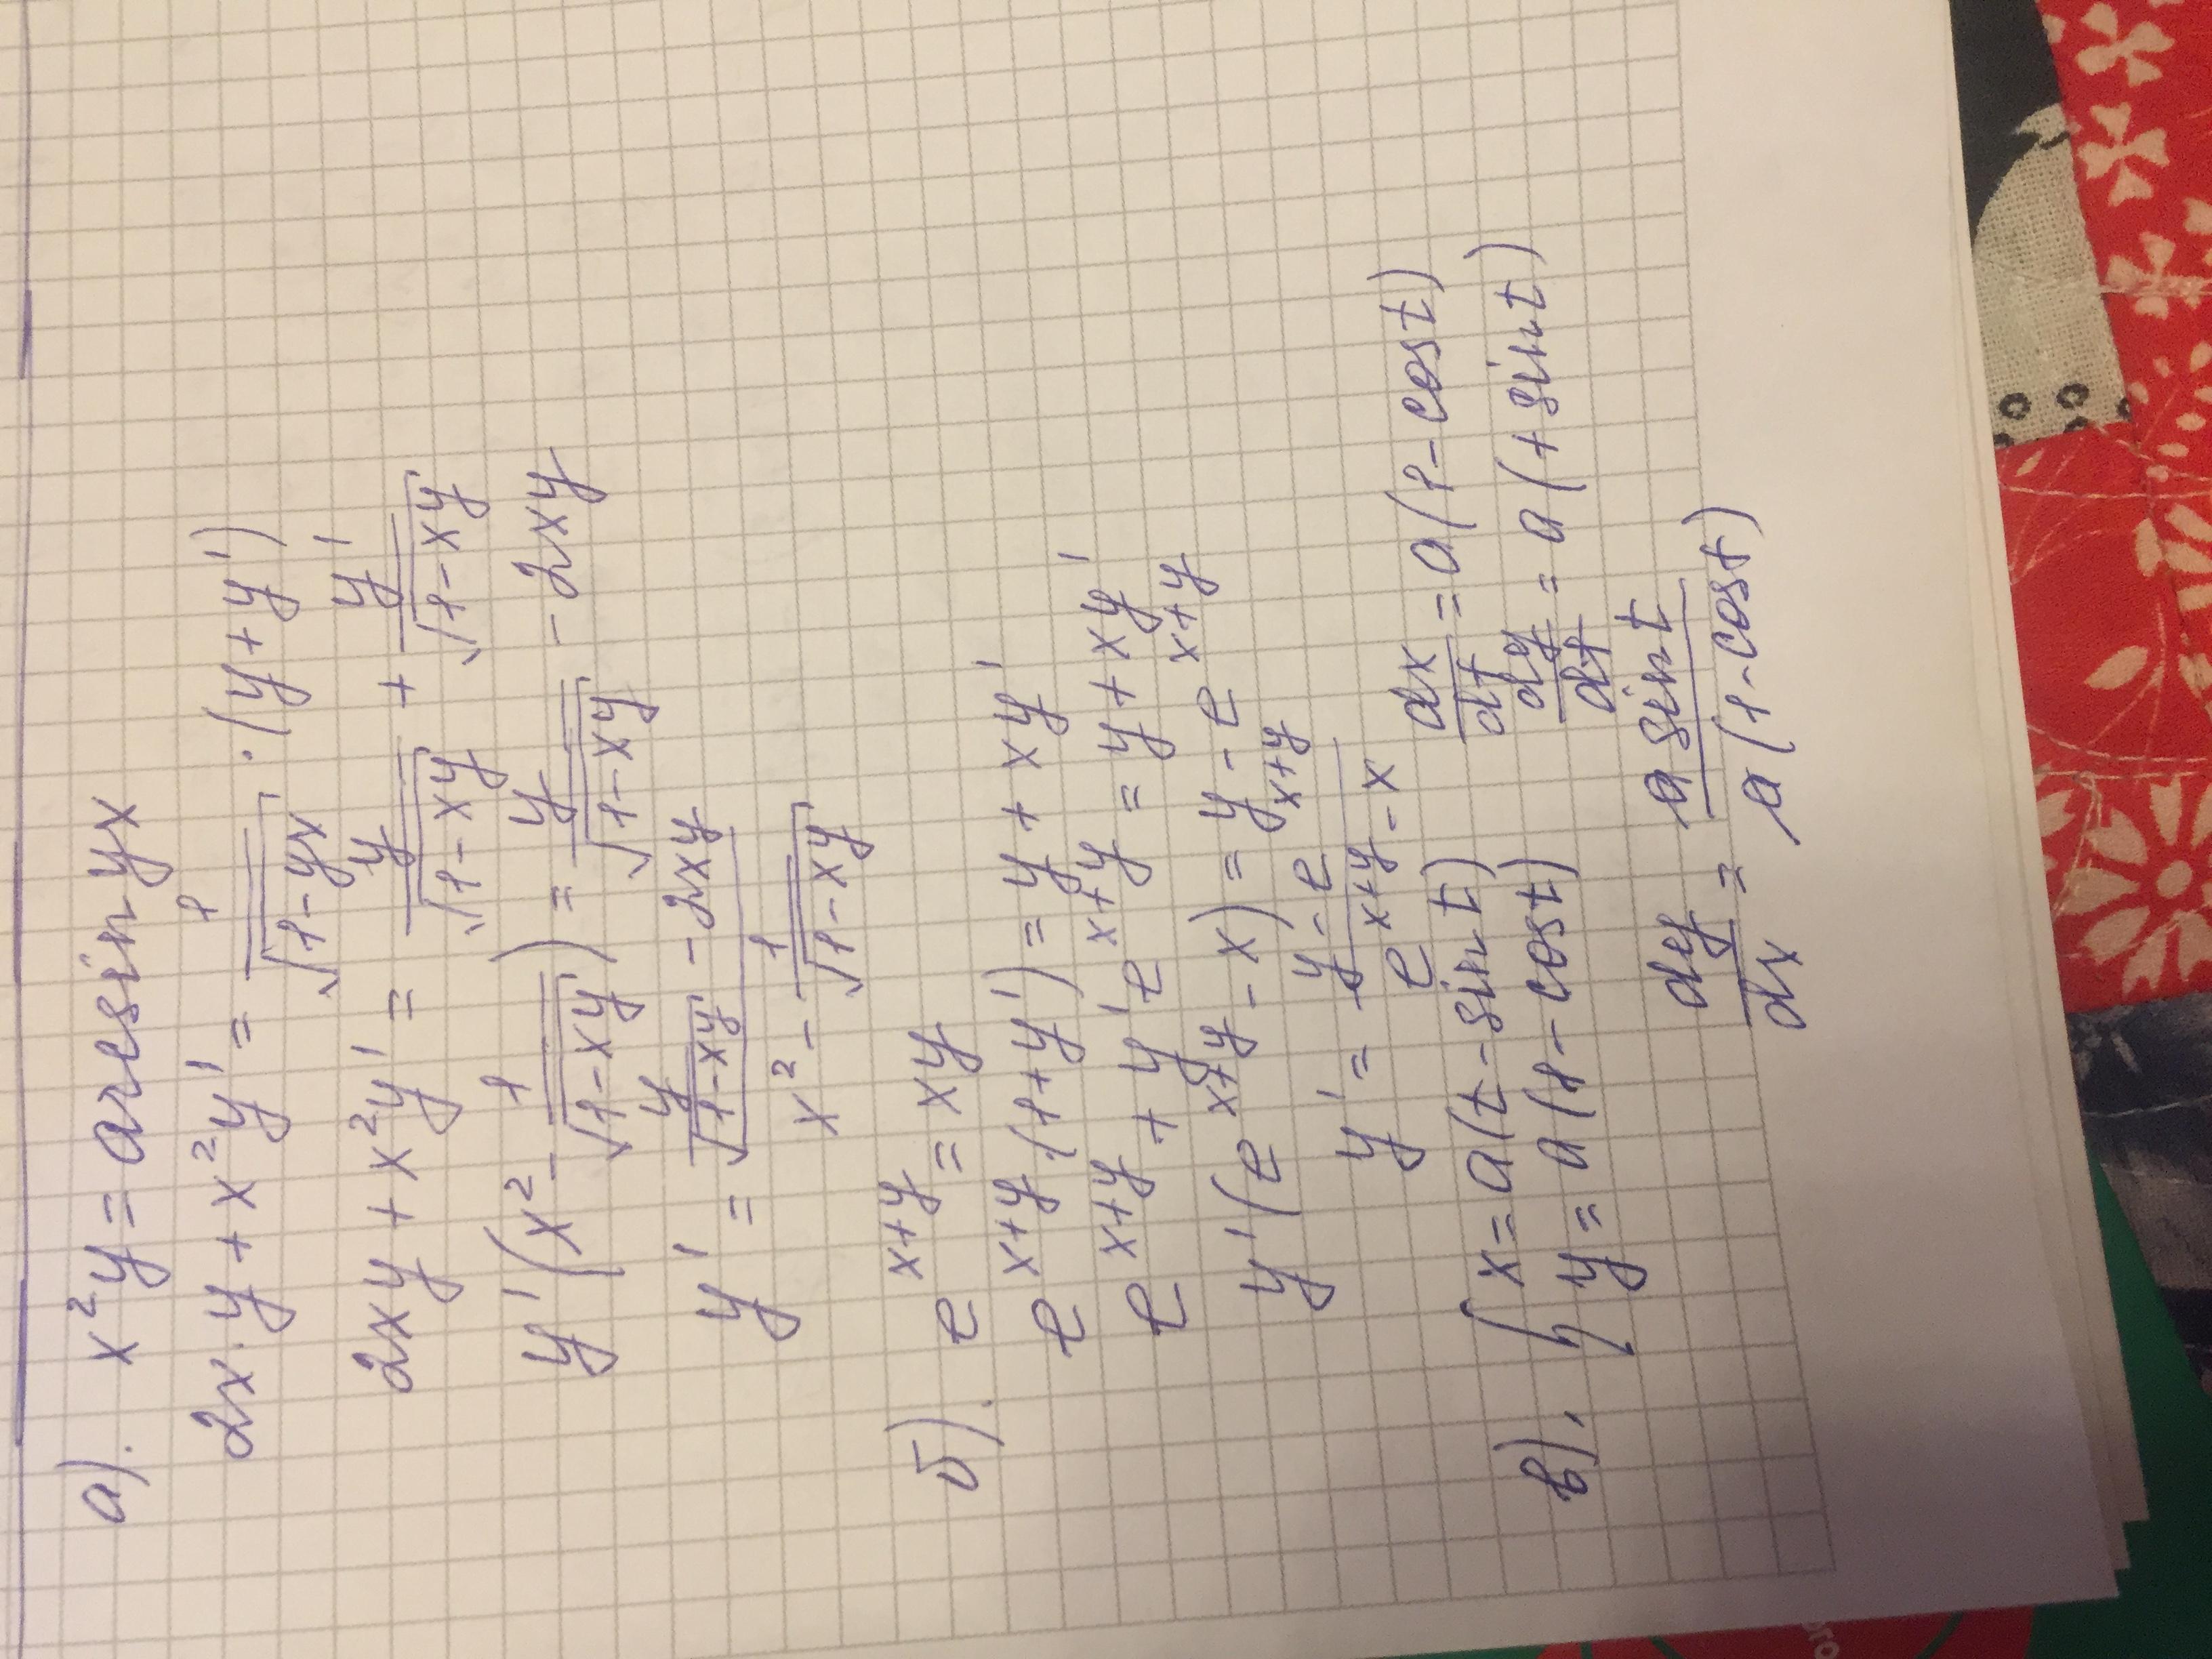 а). x²y = arcsin yx
2x·y + x²y' = 1/√(1-yx) · (y+y')
2xy + x²y' = y/√(1-xy) + y'/√(1-xy)
y'(x² - 1/√(1-xy)) = y/√(1-xy) - 2xy
y' = (y/√(1-xy) - 2xy)/(x² - 1/√(1-xy))
б). e^(x+y) = xy
e^(x+y)·(1+y') = y + xy'
e^(x+y) + y'e^(x+y) = y + xy'
y'(e^(x+y) - x) = y - e^(x+y)
y' = (y - e^(x+y))/(e^(x+y) - x)
в). { x = a(t - sin t) dx/dt = a(1 - cos t)
y = a(1 - cos t) dy/dt = a(+ sin t)
dy/dx = a sin t/a(1 - cos t)